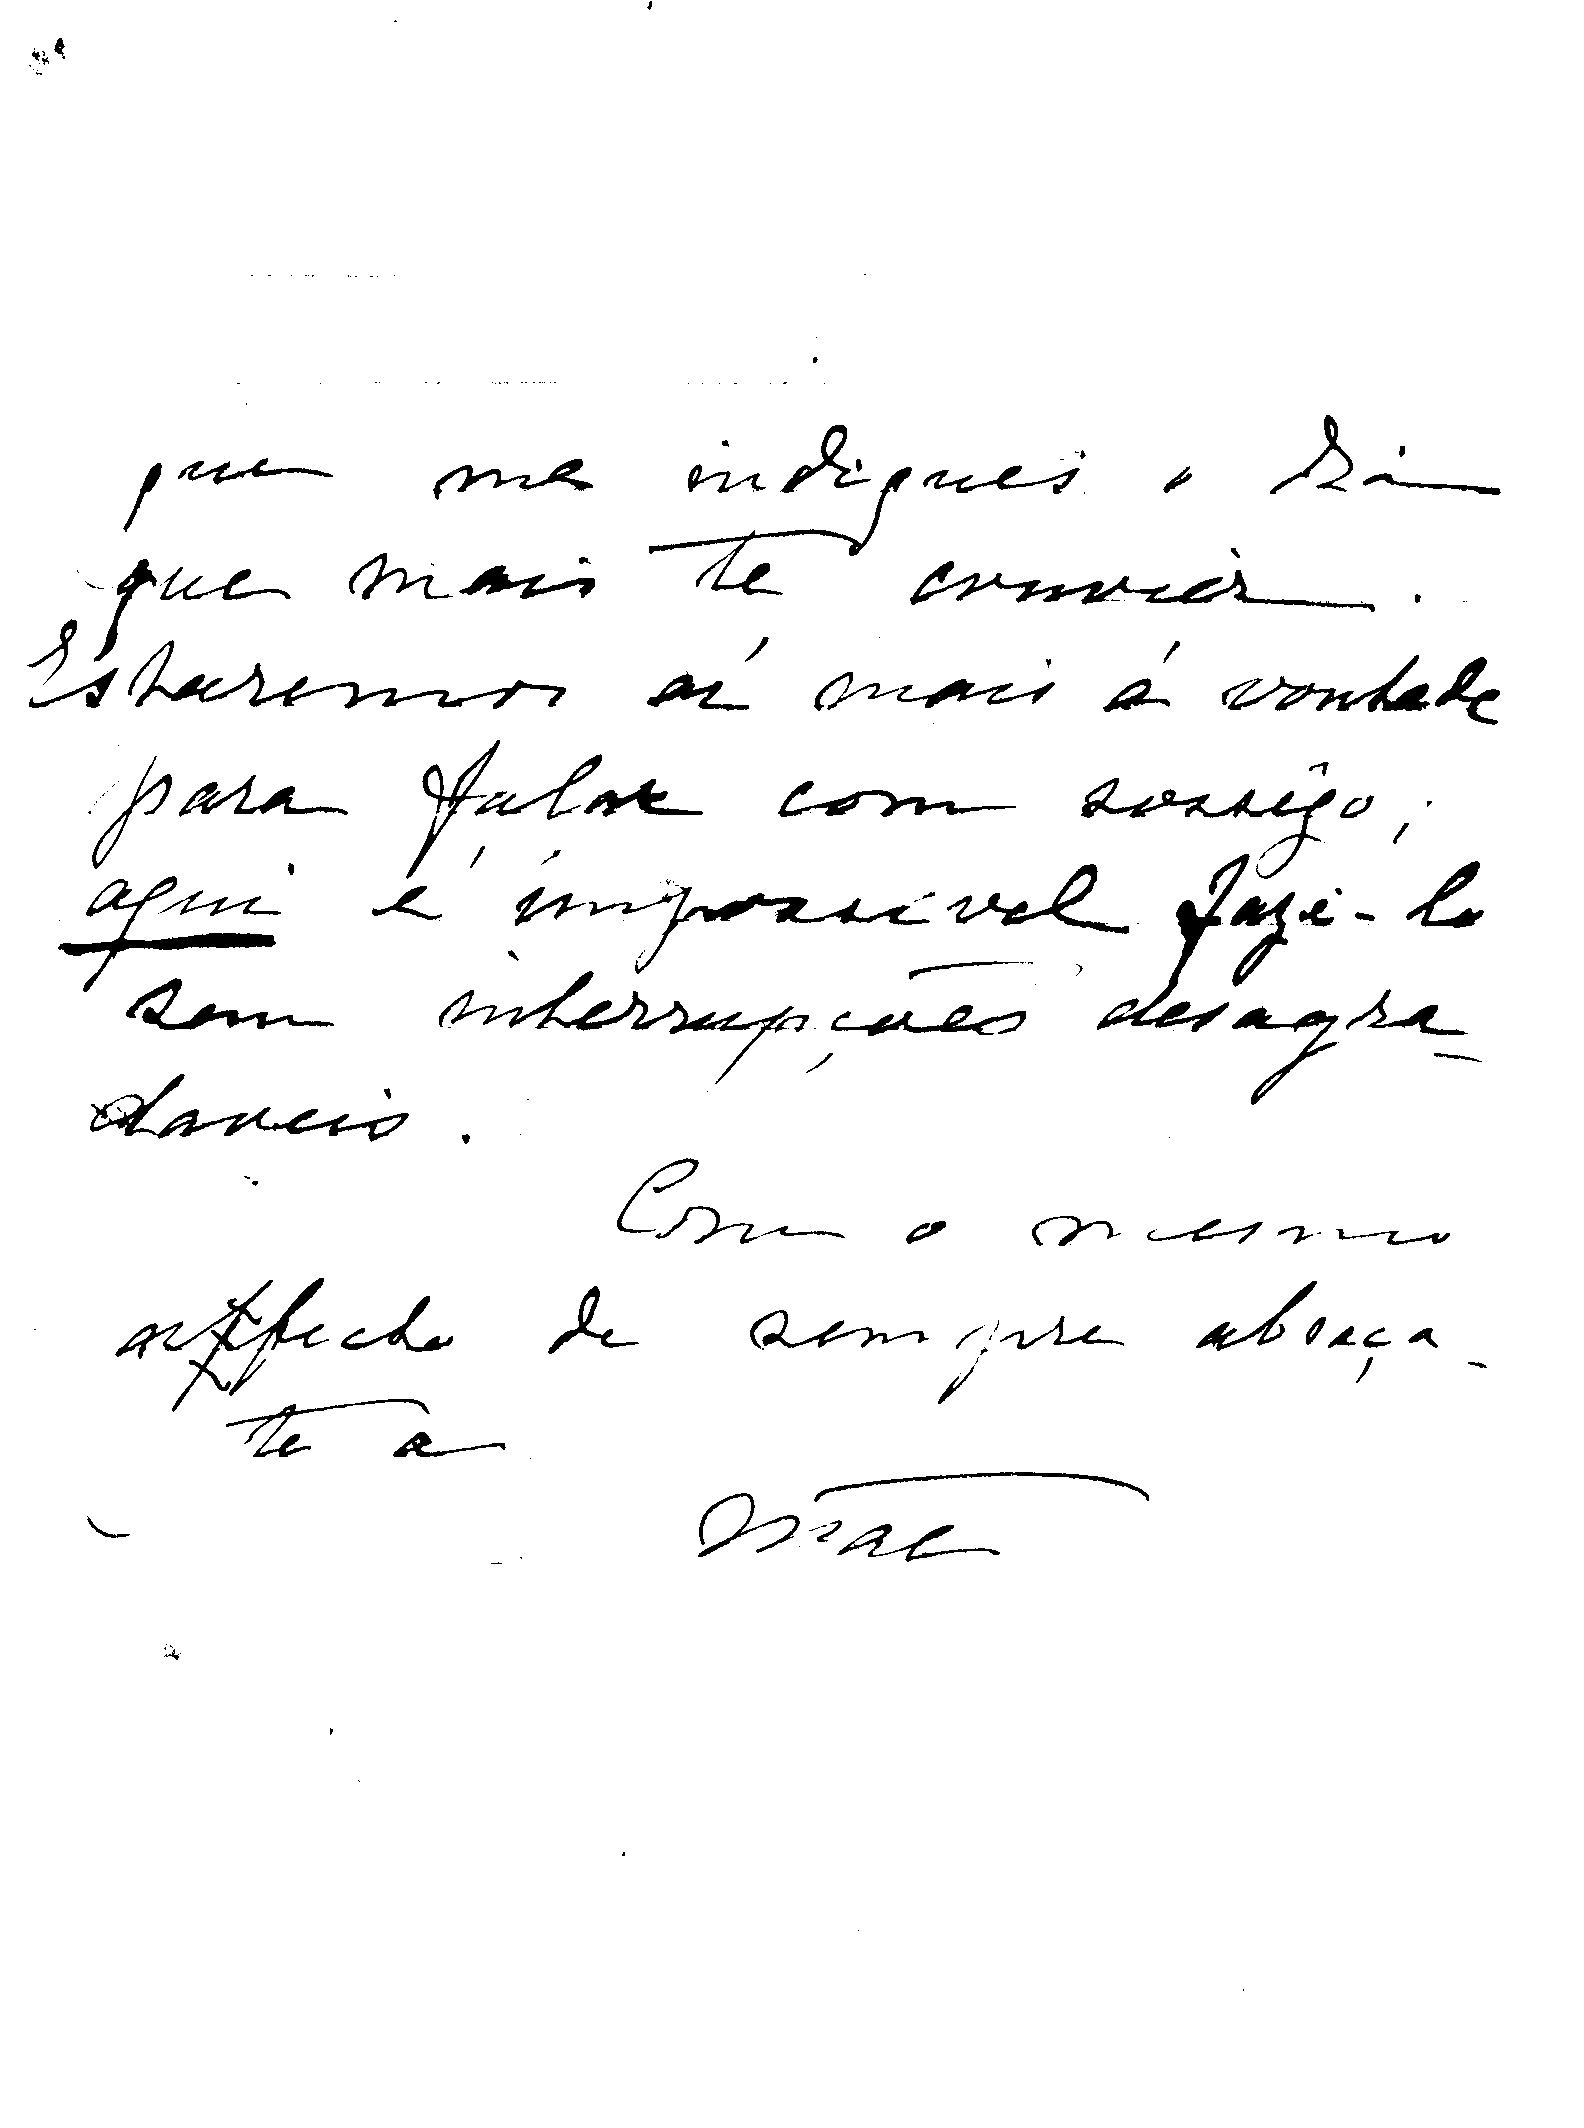 que me indiques o dia
que mais te convier.
Estaremos aí mais á vontade
para falar com sossêgo;
aqui é impossível fazê-lo
sem interrupções desagra-
daveis.
Com o mesmo
affecto de sempre abraça-
te a
Mãe